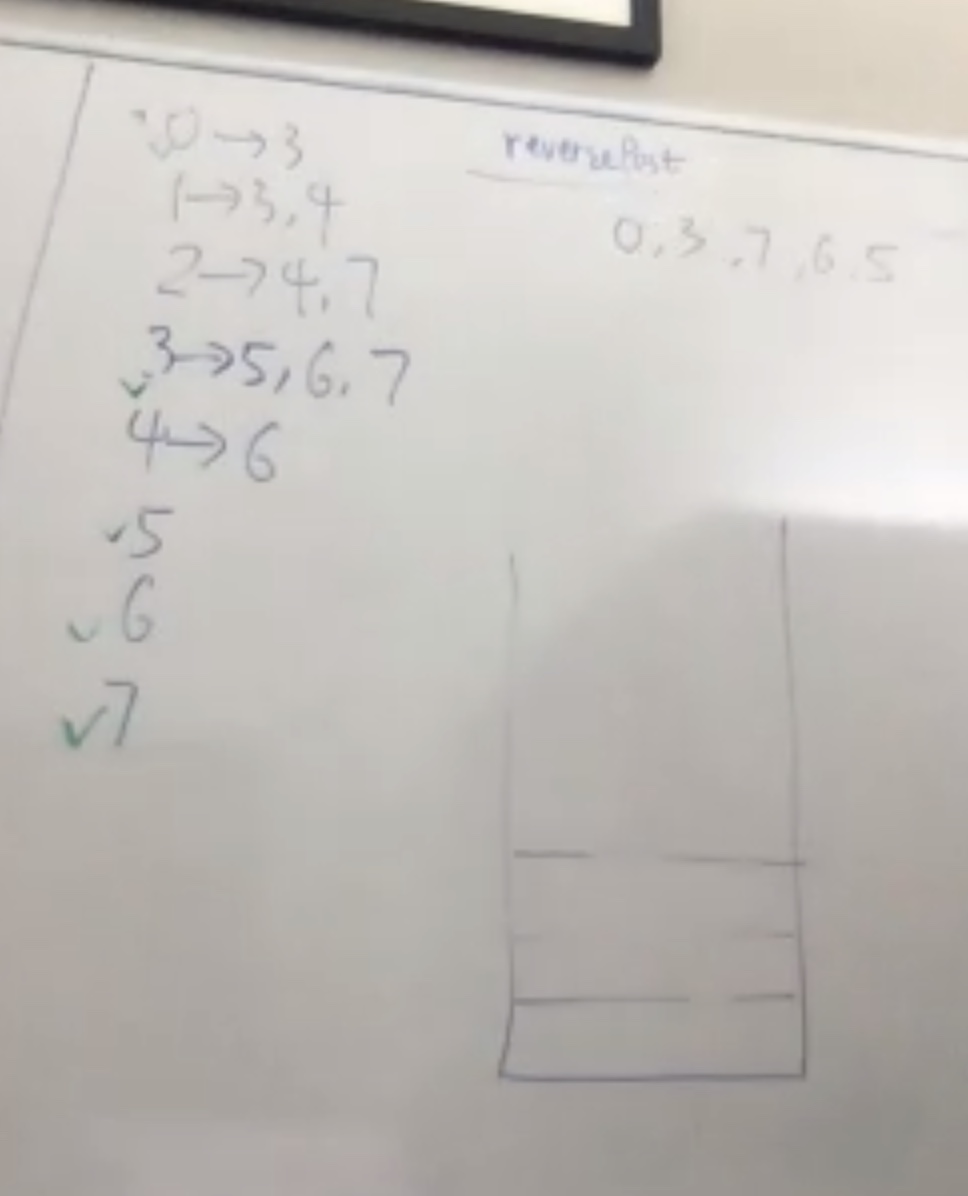 0→3
1→3,4
2→4,7
3→5,6,7
4→6
5
6
7
reversePost
0,3,7,6,5